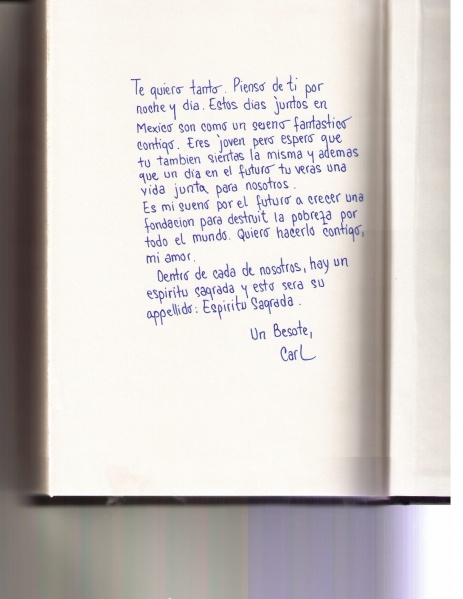 Te quiero tanto. Pienso de ti por
noche y dia. Estos dias juntos en
Mexico son como un sereno fantastico
contigo. Eres joven pero espero que
tu tambien sientas la misma y ademas
que un dia en el futuro tu veras una
vida junta para nosotros.
Es mi sueno por el futuro a crecer una
fondacion para destruit la pobreza por
todo el mundo. Quiero hacerlo contigo,
mi amor.
Dentro de cada de nosotros, hay un
espiritu sagrada y esto sera su
appellido: Espiritu Sagrada.
Un Besote,
Carl